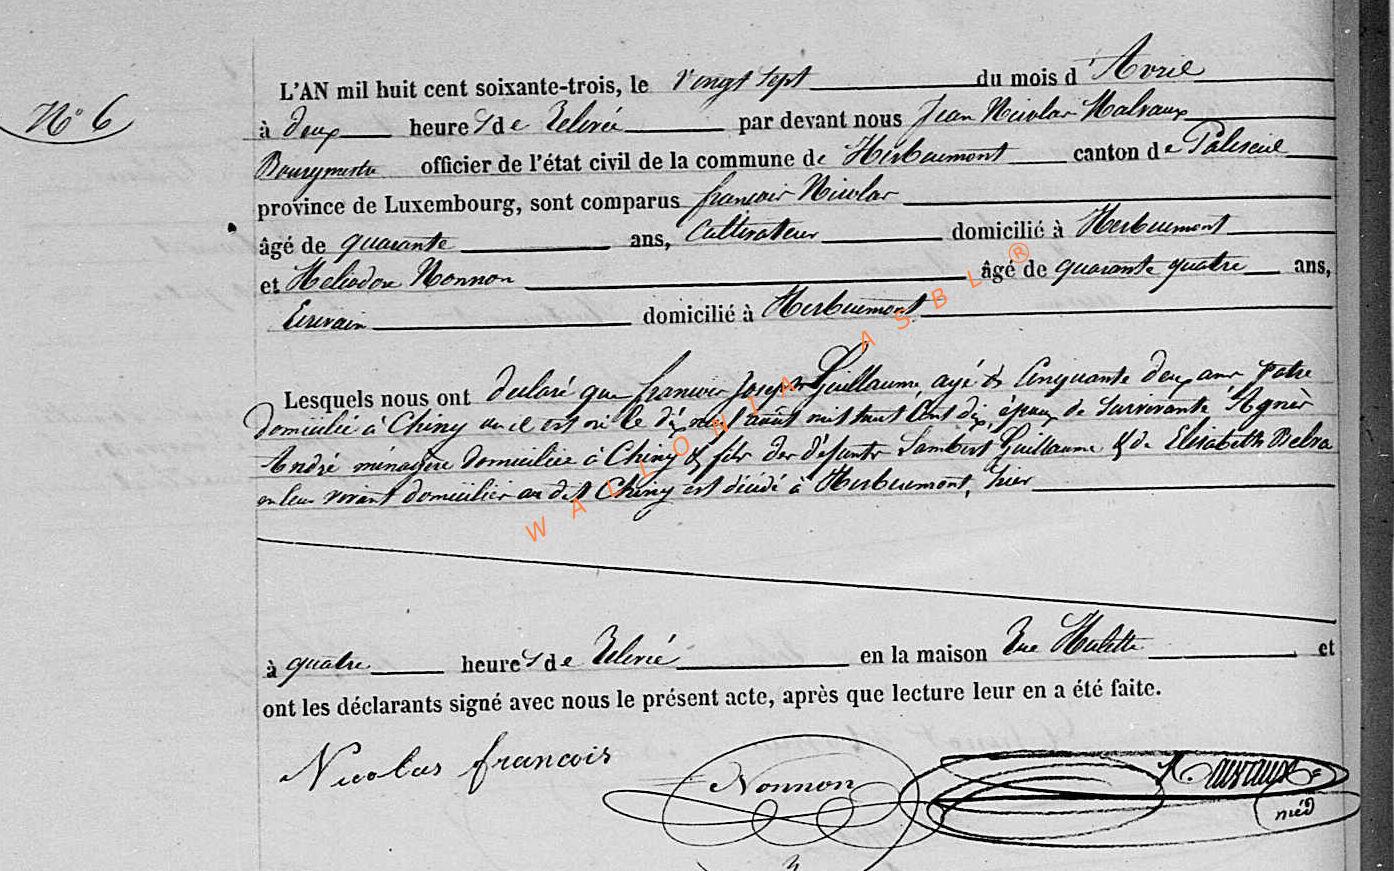 N° 6
L'AN mil huit cent soixante-trois, le vingt sept du mois d'Avril
à deux heures de Relevée par devant nous Jean Nicolas Malvaux
Bourgmestre officier de l'état civil de la commune de Herbeumont canton de Paliseul
province de Luxembourg, sont comparus françois Nicolas
âgé de quarante ans, Cultivateur domicilié à Herbeumont
et Heliodore Nonnon âgé de quarante quatre ans,
Ecrivain domicilié à Herbeumont
Lesquels nous ont declaré que francois Joseph Guillaume, agé de Cinquante deux ans
domicilié à Chiny ou il est né le août mil huit Cent dix, époux de Survivante Agnès
André ménagère domiciliée à Chiny & fils des défunts Lambert Guillaume & de Elisabeth Belva
en leur vivant domiciliés au dit Chiny est décédé à Herbeumont, hier
à quatre heures de Relevée en la maison Rue Hulette et
ont les déclarants signé avec nous le présent acte, après que lecture leur en a été faite.
Nicolas francois
Nonnon
WALLONIA ASBL ®